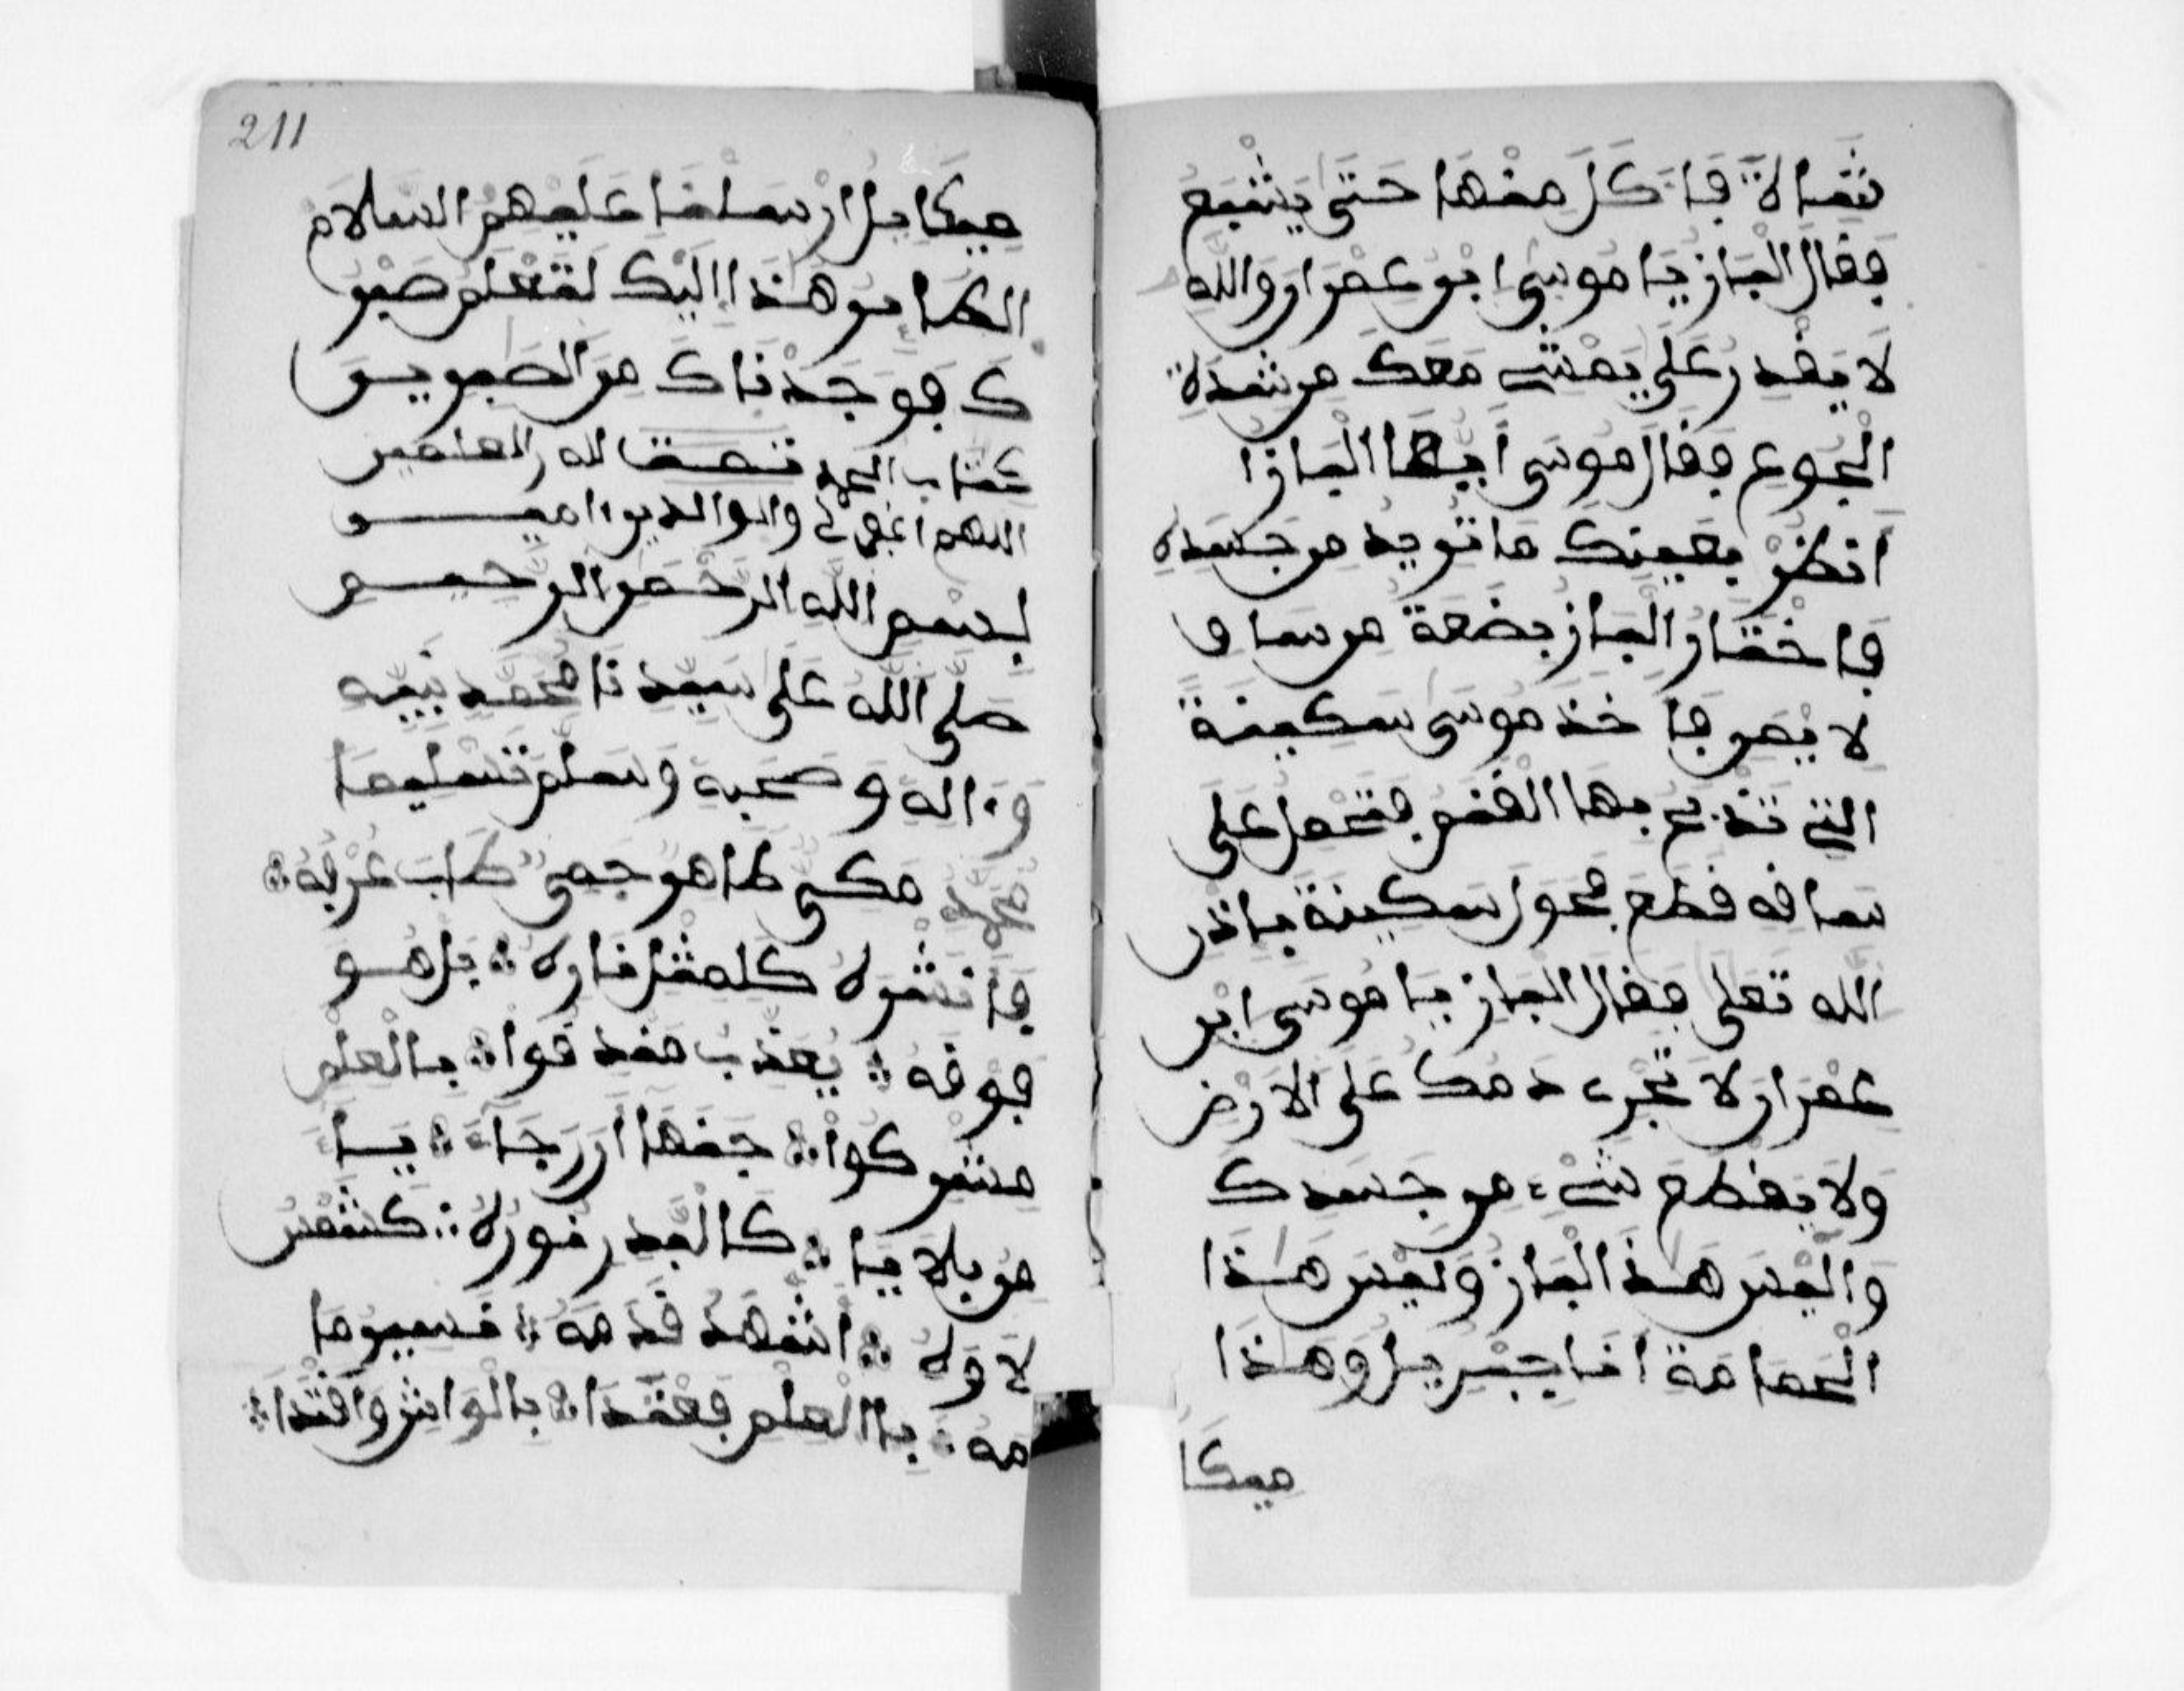 شمالاة فاكل منها حتى يشبع
فقال الباز يا موسى ابن عمران والله
لا يقدر على يمش معك من شدة
الجوع فقال موسى ايها الباز ا
انظر بعينك ما تريد من جسده
فاختار الباز بضعة من ساق
لا يمن فاخذ موسى سكينة
التي تذبح بها الغنم فتحمل على
ساقه قطع فحول سكينة باذن
الله تعلى فقال الباز يا موسى ابن
عمران لا تجر دمك على الارض
ولا يقطع شيء من جسدك
واليس هذ الباز وليس هذا
الحمامة انا جبريل وهذا
ميكا
211
ميكايل ارسلنا عليهم السلام
الطابر هذا اليك لتعلم صبر
ك فوجدناك من الصبرين
كتاب الحمد لله رب العلمين
اللهم اغفر لي والوالدين امين
بسم الله الرحمن الرحيم
صلى الله على سيدنا محمد نبيه
و اله وصحبه وسلم تسليما
مكي طاهر جمى طاب عرفه
فانشره كلمثل ناره بل هو
فوقه يعذب منه قوا بالعلم
مشركوا جنها ارجا يا
من بلا يا كالبدر نوره كشمس
لاوله اشهد قدمه نسيرما
مه باالعلم فعتدا بالوارث واقتدا